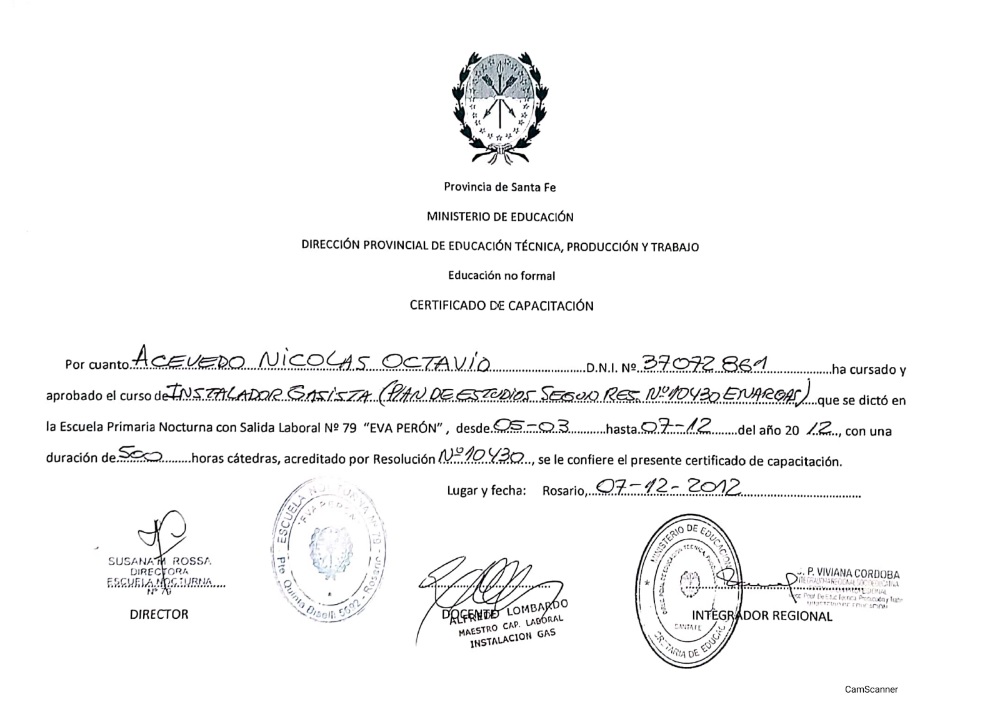 Provincia de Santa Fe
MINISTERIO DE EDUCACIÓN
DIRECCIÓN PROVINCIAL DE EDUCACIÓN TÉCNICA, PRODUCCIÓN Y TRABAJO
Educación no formal
CERTIFICADO DE CAPACITACIÓN
Por cuanto ACEVEDO NICOLAS OCTAVIO D.N.I. Nº 37072861 ha cursado y
aprobado el curso de INSTALADOR GASISTA (PLAN DE ESTUDIOS SEGUN RES. Nº10430 ENARGAS) que se dictó en
la Escuela Primaria Nocturna con Salida Laboral Nº 79 "EVA PERÓN", desde 05-03 hasta 07-12 del año 20 12, con una
duración de 500 horas cátedras, acreditado por Resolución Nº10430, se le confiere el presente certificado de capacitación.
Lugar y fecha: Rosario, 07-12-2012
ESCUELA NOCTURNA Nº 79 - Rosario
"EVA PERON"
SUSANA M ROSSA
DIRECTORA
ESCUELA NOCTURNA
Nº 79
DIRECTOR
DOCENTE
ALFREDO LOMBARDO
MAESTRO CAP. LABORAL
INSTALACION GAS
MINISTERIO DE EDUCACION
SANTA FE
P. VIVIANA CORDOBA
INTEGRADOR REGIONAL
CamScanner